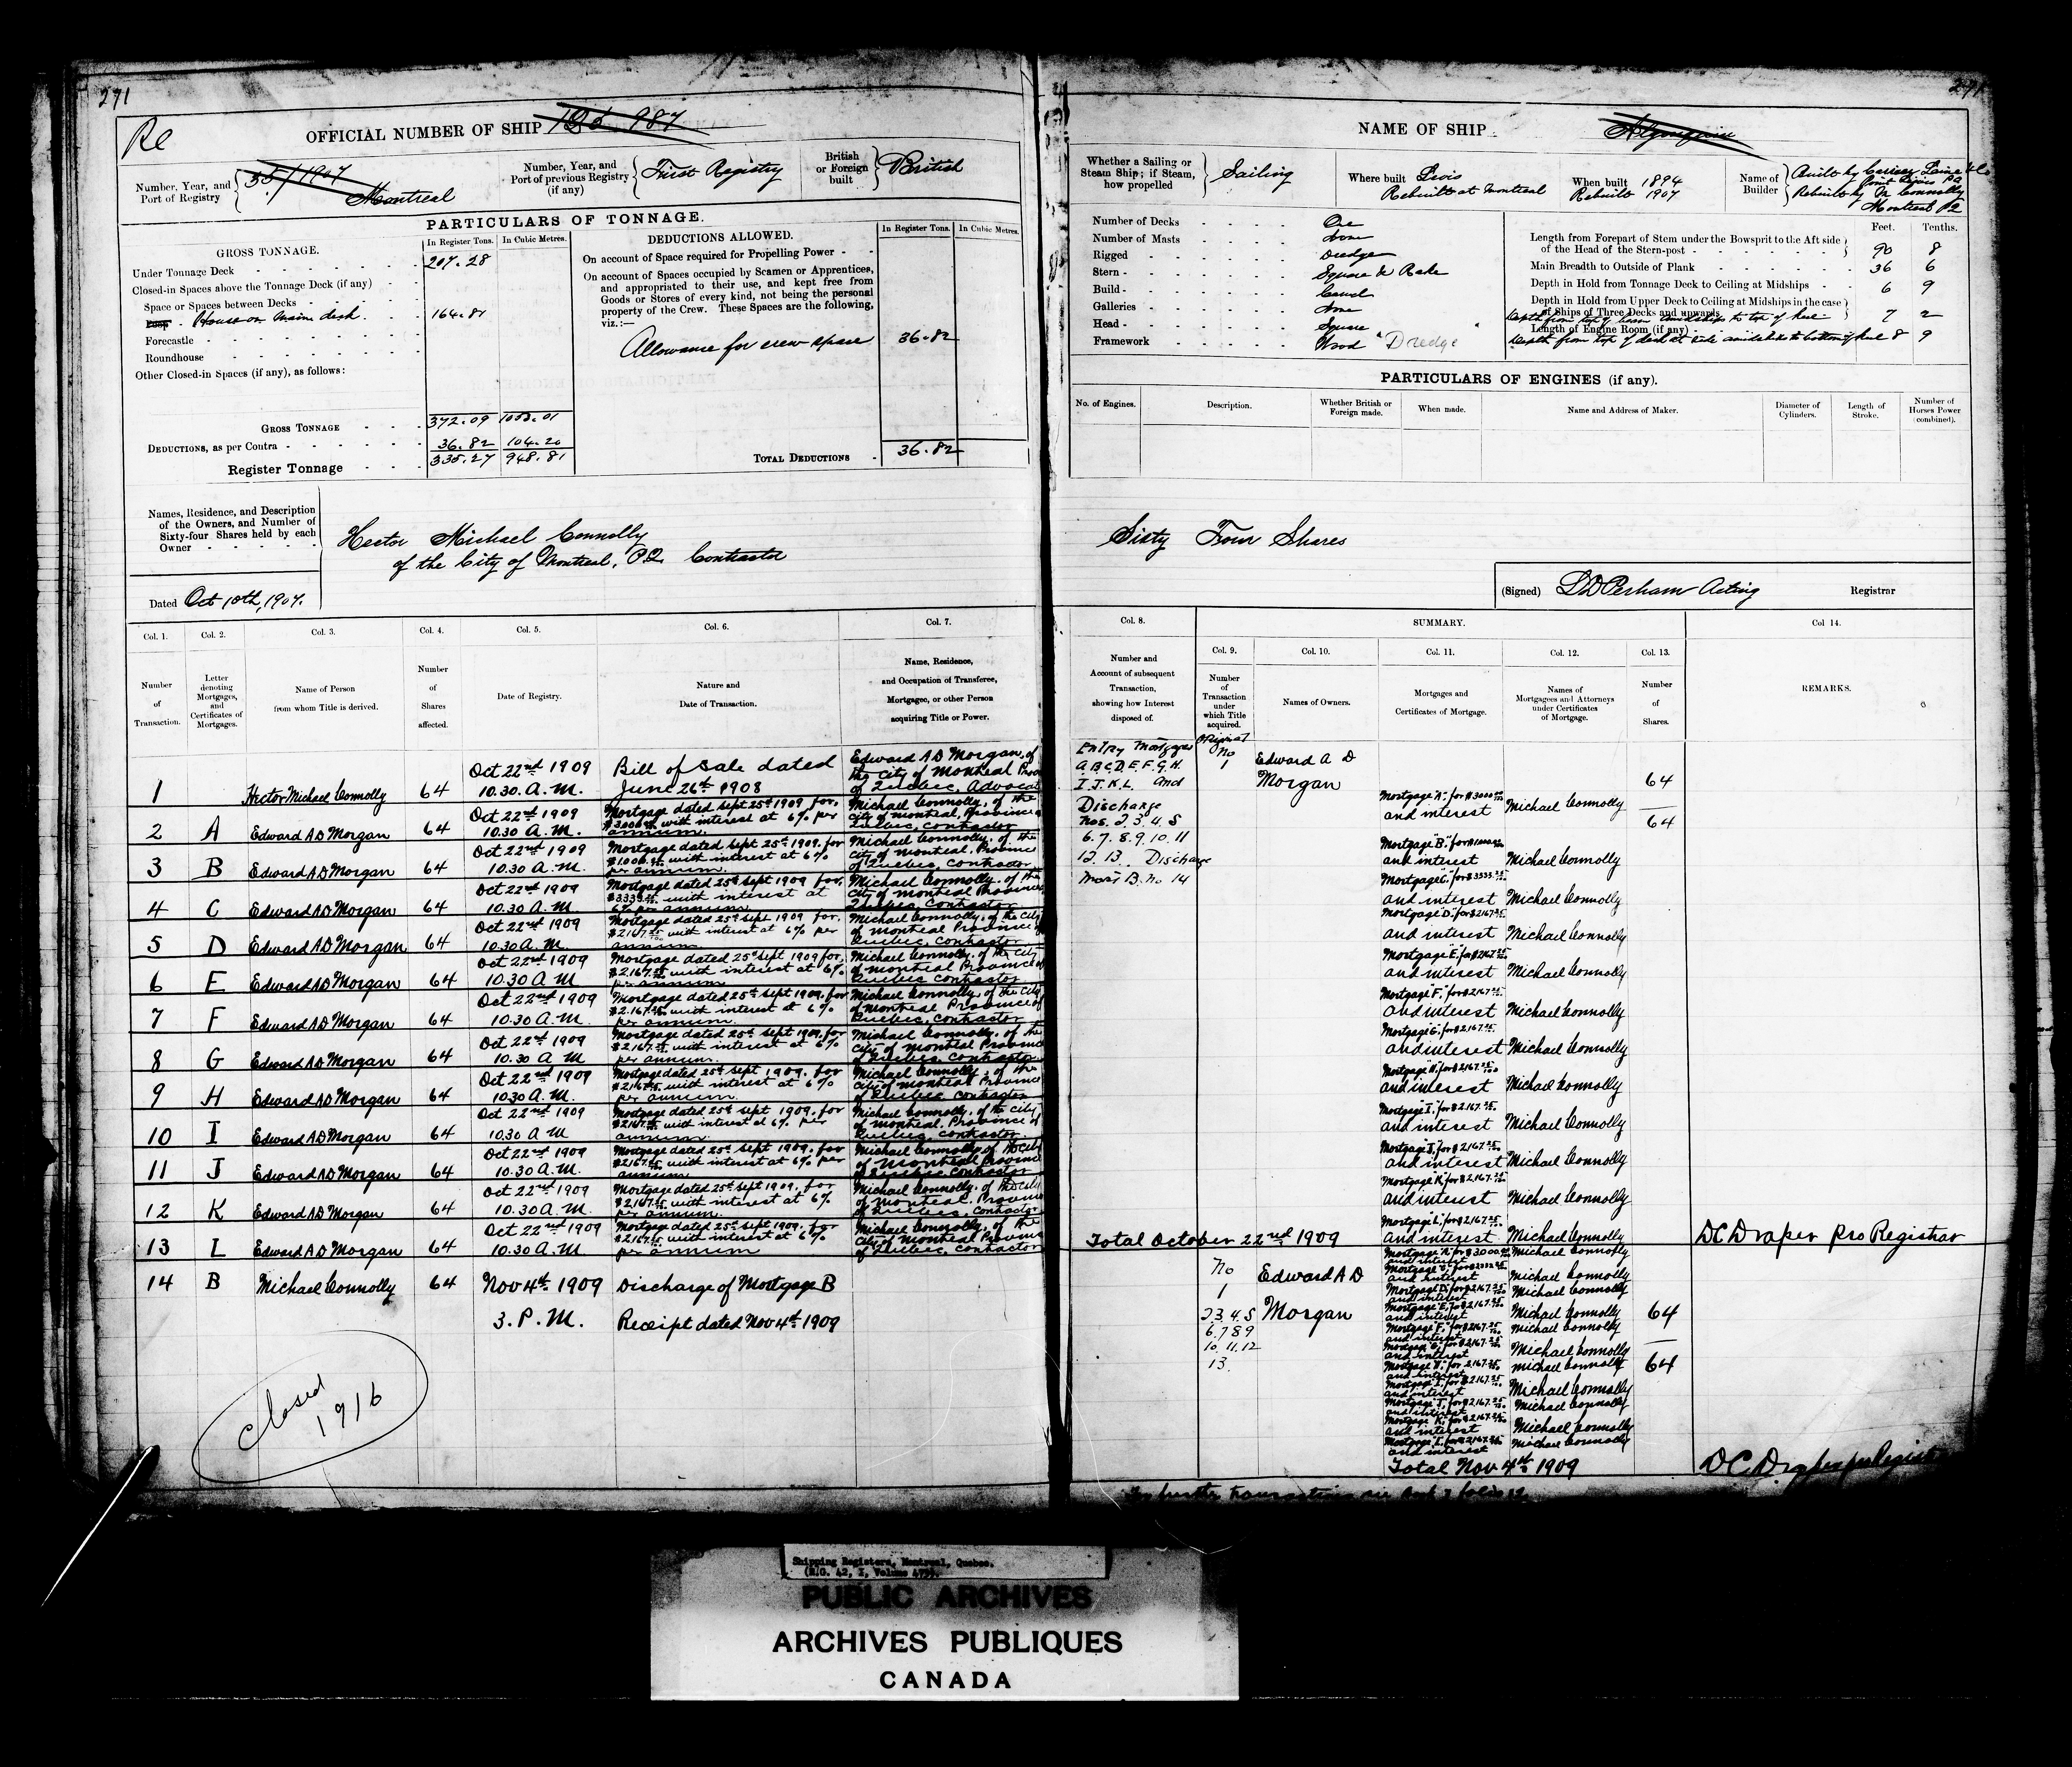 271
271
Re
OFFICIAL NUMBER OF SHIP 987
Number, Year, and Port of Registry 35/1907 Montreal
Number, Year, and Port of previous Registry (if any) First Registry
British or Foreign built British
PARTICULARS OF TONNAGE.
GROSS TONNAGE.
In Register Tons. In Cubic Metres.
Under Tonnage Deck 207.28
Closed-in Spaces above the Tonnage Deck (if any)
Space or Spaces between Decks
Poop House on main deck. 164.81
Forecastle
Roundhouse
Other Closed-in Spaces (if any), as follows:
GROSS TONNAGE 372.09 1053.01
DEDUCTIONS, as per Contra 36.82 104.20
Register Tonnage 335.27 948.81
DEDUCTIONS ALLOWED.
In Register Tons. In Cubic Metres.
On account of Space required for Propelling Power
On account of Spaces occupied by Seamen or Apprentices,
and appropriated to their use, and kept free from
Goods or Stores of every kind, not being the personal
property of the Crew. These Spaces are the following,
viz.:—
Allowance for crew space 36.82
TOTAL DEDUCTIONS 36.82
Names, Residence, and Description
of the Owners, and Number of
Sixty-four Shares held by each
Owner
Hector Michael Connolly
of the City of Montreal, P.Q. Contractor
Dated Oct 10th, 1907.
NAME OF SHIP Algonquin
Whether a Sailing or Steam Ship; if Steam, how propelled Sailing
Where built Levis
Rebuilt at Montreal
When built 1894
Rebuilt 1907
Name of Builder Built by Carrier Laine & Co
Levis PQ
Rebuilt by M Connolly
Montreal PQ
Number of Decks One
Number of Masts None
Rigged Dredge
Stern Square & Rake
Build Carvel
Galleries None
Head Square
Framework Wood "Dredge"
Feet. Tenths.
Length from Forepart of Stem under the Bowsprit to the Aft side
of the Head of the Stern-post 90 8
Main Breadth to Outside of Plank 36 6
Depth in Hold from Tonnage Deck to Ceiling at Midships 6 9
Depth in Hold from Upper Deck to Ceiling at Midships in the case
of Ships of Three Decks and upwards
Depth from top of beam amidships to top of keel 7 2
Length of Engine Room (if any)
Depth from top of deck at side amidships to bottom of keel 8 9
PARTICULARS OF ENGINES (if any).
No. of Engines. Description. Whether British or Foreign made. When made. Name and Address of Maker. Diameter of Cylinders. Length of Stroke. Number of Horses Power (combined).
Sixty Four Shares
(Signed) L D Perham Acting Registrar
Col. 1. Col. 2. Col. 3. Col. 4. Col. 5. Col. 6. Col. 7.
Number of Transaction.
Letter denoting Mortgages, and Certificates of Mortgages.
Name of Person from whom Title is derived.
Number of Shares affected.
Date of Registry.
Nature and Date of Transaction.
Name, Residence, and Occupation of Transferee, Mortgagee, or other Person acquiring Title or Power.
1 Hector Michael Connolly 64 Oct 22nd 1909 10.30. A.M. Bill of Sale dated June 26th 1908 Edward A D Morgan, of the city of Montreal Province of Quebec, Advocate
2 A Edward A D Morgan 64 Oct 22nd 1909 10.30 A.M. Mortgage dated sept 25th 1909 for $3000.00 with interest at 6% per annum. Michael Connolly, of the city of Montreal, Province Quebec, contractor
3 B Edward A D Morgan 64 Oct 22nd 1909 10.30 A.M. Mortgage dated sept 25th 1909. for $1000.00 with interest at 6% per annum. Michael Connolly. of the city of Montreal. Province of Quebec, contractor
4 C Edward A D Morgan 64 Oct 22nd 1909 10.30 A.M. Mortgage dated 25th sept 1909 for, $3333.25 with interest at 6% per annum Michael Connolly. of the city of Montreal Province Quebec. Contractor
5 D Edward A D Morgan 64 Oct 22nd 1909 10.30 A.M. Mortgage dated 25th sept 1909 for. $2167.25 with interest at 6% per annum Michael Connolly, of the city of Montreal Province of Quebec, contractor
6 E Edward A D Morgan 64 Oct 22nd 1909 10.30 A M Mortgage dated 25th sept 1909 for, $2167.25 with interest at 6% per annum Michael Connolly. of the city of Montreal Province of Quebec, contractor
7 F Edward A D Morgan 64 Oct 22nd 1909 10.30 A.M. Mortgage dated 25th sept 1909. for $2.167.25 with interest at 6% per annum. Michael Connolly, of the city of Montreal Province of Quebec, contractor
8 G Edward A D Morgan 64 Oct 22nd 1909 10.30 A M Mortgage dated 25th sept 1909, for $2167.25 with interest at 6% per annum. Michael Connolly, of the city of Montreal Province of Quebec, contractor
9 H Edward A D Morgan 64 Oct 22nd 1909 10.30 A.M. Mortgage dated 25th sept 1909. for $2167.25 with interest at 6% per annum. Michael Connolly, of the city of Montreal Province of Quebec contractor
10 I Edward A D Morgan 64 Oct 22nd 1909 10.30 A M Mortgage dated 25th sept 1909. for $2167.25 with interest at 6% per annum. Michael Connolly, of the city of Montreal, Province of Quebec, contractor.
11 J Edward A D Morgan 64 Oct 22nd 1909 10.30 A.M. Mortgage dated 25th sept 1909. for $2167.25 with interest at 6% per annum Michael Connolly, of the city of Montreal Province of Quebec contractor
12 K Edward A D Morgan 64 Oct 22nd 1909 10.30 A.M. Mortgage dated 25th sept 1909. for $2.167.25 with interest at 6% per annum. Michael Connolly. of the city of Montreal, Province of Quebec, contractor
13 L Edward A D Morgan 64 Oct 22nd 1909 10.30 A.M. Mortgage dated 25th sept 1909. for $2167.25 with interest at 6% per annum Michael Connolly, of the city of Montreal Province of Quebec, contractor
14 B Michael Connolly 64 Nov 4th 1909 Discharge of Mortgage B
3. P.M. Receipt dated Nov 4th 1909
Closed
1916
Col. 8. SUMMARY. Col 14.
Col. 9. Col. 10. Col. 11. Col. 12. Col. 13.
Number and Account of subsequent Transaction, showing how Interest disposed of.
Number of Transaction under which Title acquired.
Names of Owners.
Mortgages and Certificates of Mortgage.
Names of Mortgagees and Attorneys under Certificates of Mortgage.
Number of Shares.
REMARKS.
Entry Mortgages
A.B.C.D.E.F.G.H.
I.J.K.L. and
Discharge
Nos. 2. 3. 4. 5
6. 7. 8. 9. 10. 11
12. 13. Discharge
Mort B. No 14
Original No 1
Edward A D
Morgan
64
64
Mortgage "A". for $3000.00 and interest Michael Connolly
Mortgage "B". for $1000.00 and interest Michael Connolly
Mortgage "C". for $3333.25 and interest Michael Connolly
Mortgage "D". for $2167.25 and interest Michael Connolly
Mortgage "E". for $2167.25 and interest Michael Connolly
Mortgage "F". for $2167.25 and interest Michael Connolly
Mortgage "G". for $2.167.25 and interest Michael Connolly
Mortgage "H". for $2167.25 and interest Michael Connolly
Mortgage "I". for $2.167.25 and interest Michael Connolly
Mortgage "J". for $2167.25 and interest Michael Connolly
Mortgage "K". for $2.167.25 and interest Michael Connolly
Mortgage "L". for $2167.25 and interest Michael Connolly
Total October 22nd 1909
D C Draper pro Registrar
No
1
2.3.4.5
6.7.8.9
10.11.12
13.
Edward A D
Morgan
64
64
Mortgage "A". for $3000.00 and interest Michael Connolly
and interest Michael Connolly
Mortgage "D". for $2167.25 and interest Michael Connolly
Mortgage "E". for $2167.25 and interest Michael Connolly
Mortgage "F". for $2167.25 and interest Michael Connolly
Mortgage "G". for $2167.25 and interest Michael Connolly
Mortgage "H". for 2167.25 and interest Michael Connolly
Mortgage "I". for $2167.25 and interest Michael Connolly
Mortgage "J". for $2167.25 and interest Michael Connolly
Mortgage "K". for $2167.25 and interest Michael Connolly
Mortgage "L". for $2167.25 and interest Michael Connolly
Total Nov 4th 1909
D C Draper pro Registrar
For further transactions see Book 7 folio 12
Shipping Registers, Montreal, Quebec.
(R.G. 42, I, Volume 475).
PUBLIC ARCHIVES
ARCHIVES PUBLIQUES
CANADA